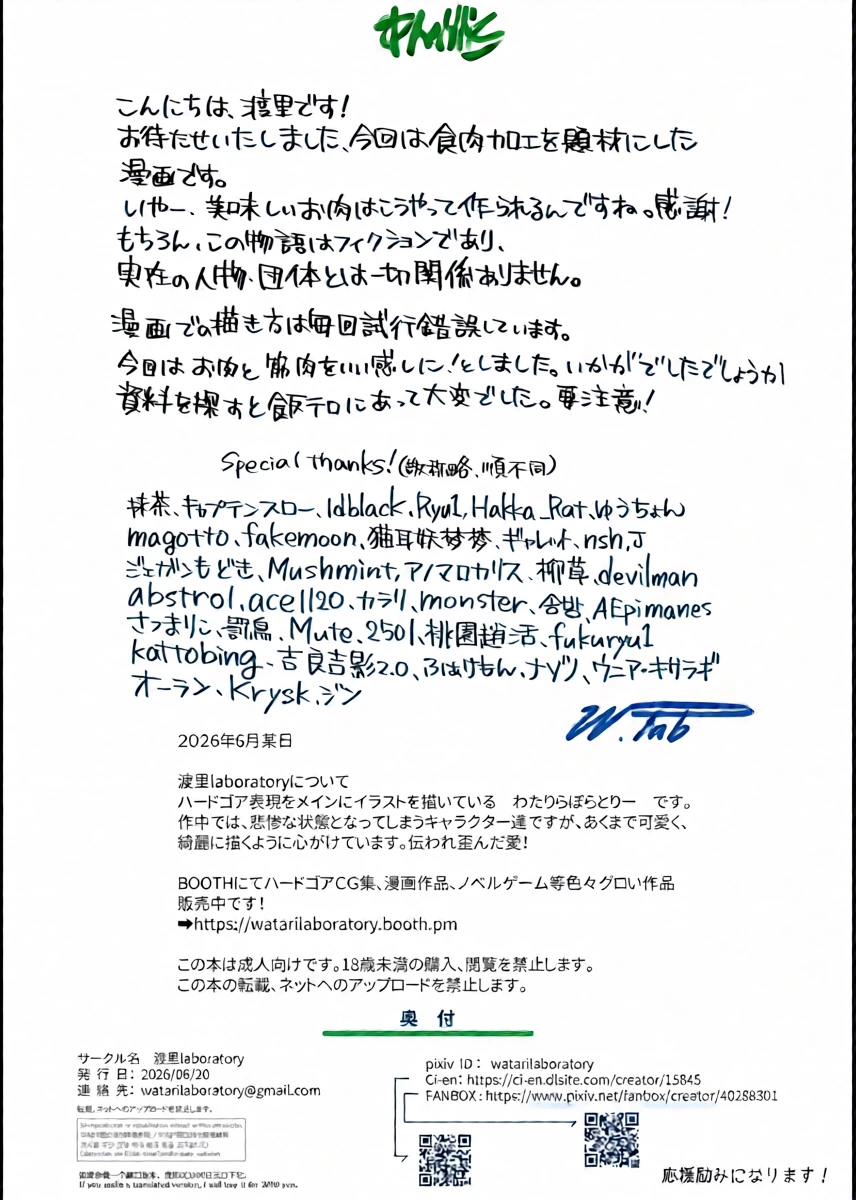 こんにちは、渡里です!
お待たせいたしました、今回は食肉加工を題材にした
漫画です。
いやー、美味しいお肉はこうやって作られるんですね。感謝!
もちろん、この物語はフィクションであり、
実在の人物、団体とは一切関係ありません。
漫画での描き方は毎回試行錯誤しています。
今回はお肉と筋肉をいい感じに!としました。いかがでしたでしょうか
資料を探すと飯テロにあって大変でした。要注意!
Special thanks!(敬称略、順不同)
抹茶、キャプテンスロー、Idblack、Ryu1、Hakka_Rat、ゆうちょん
magotto、fakemoon、猫耳妖梦梦、ギャレット、nsh、J
ジェガンもどき、Mushmint、アノマロカリス、柳葺、devilman
abstrol、ace1120、カラリ、monster、AEpimanes
さつまりこ、罰鳥、Mute、2501、桃園趙活、fukuryu1
kattobing、吉良吉影2.0、ふぁけもん、ナゾノ、ヴニア・キサラギ
オーラン、Krysk、ジン
W.Tab
2026年6月某日
渡里laboratoryについて
ハードゴア表現をメインにイラストを描いている わたりらぼらとりー です。
作中では、悲惨な状態となってしまうキャラクター達ですが、あくまで可愛く、
綺麗に描くように心がけています。伝われ歪んだ愛!
BOOTHにてハードゴアCG集、漫画作品、ノベルゲーム等色々グロい作品
販売中です!
➡https://watarilaboratory.booth.pm
この本は成人向けです。18歳未満の購入、閲覧を禁止します。
この本の転載、ネットへのアップロードを禁止します。
奥付
サークル名 渡里laboratory
発行日: 2026/06/20
連絡先: watarilaboratory@gmail.com
転載、ネットへのアップロードを禁止します。
If you make a translated version, I will buy it for 2000 yen.
pixiv ID: watarilaboratory
Ci-en: https://ci-en.dlsite.com/creator/15845
FANBOX: https://www.pixiv.net/fanbox/creator/40288301
応援励みになります!